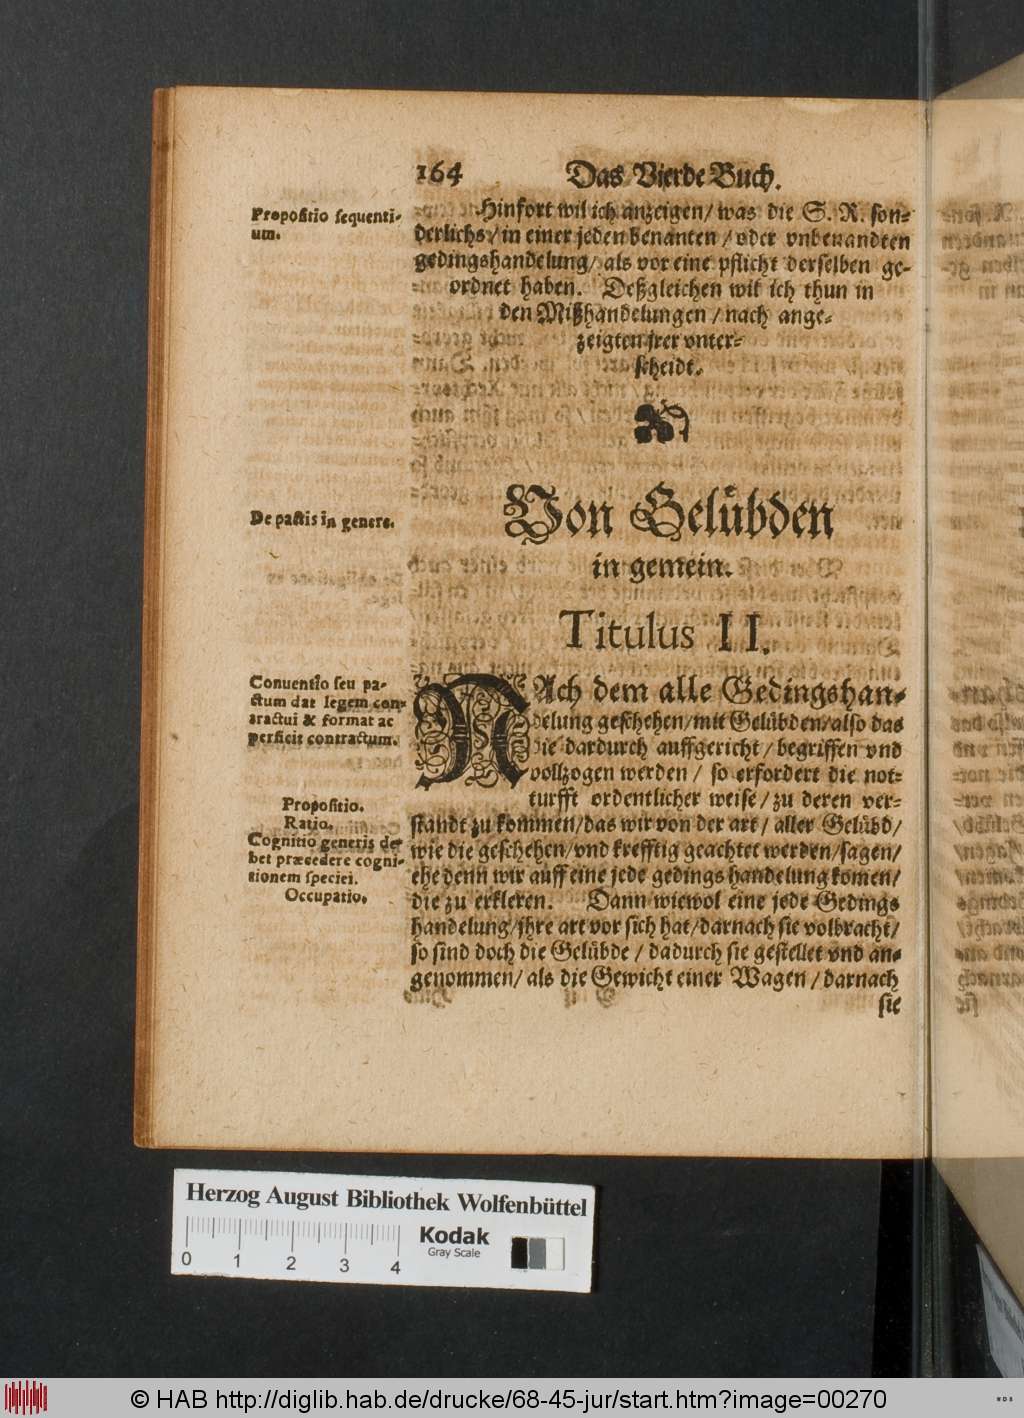 164 Das Vierde Buch.
Propositio sequenti-
um.
Hinfort wil ich anzeigen/ was die S. R. son-
derlichs/ in einer jeden benanten/ oder vnbenandten
gedingshandelung/ als vor eine pflicht derselben ge-
ordnet haben. Deßgleichen wil ich thun in
den Mißhandelungen/ nach ange-
zeigten jrer vnter-
scheidt.
De pactis in genere.
Von Gelübden
in gemein.
Titulus II.
Conuentio seu pa-
ctum dat legem con-
tractui & format ac
perficit contractum.
Propositio.
Ratio.
Cognitio generis de-
bet præcedere cogni-
tionem speciei.
Occupatio.
NAch dem alle Gedingshan-
delung geschehen/ mit Gelübden/ also das
die dardurch auffgericht/ begriffen vnd
vollzogen werden/ so erfordert die not-
turfft ordentlicher weise/ zu deren ver-
standt zu kommen/ das wir von der art/ aller Gelübd/
wie die geschehen/ vnd krefftig geachtet werden/ sagen/
ehe denn wir auff eine jede gedings handelung komen/
die zu erkleren. Dann wiewol eine jede Gedings
handelung/ jhre art vor sich hat/ darnach sie volbracht/
so sind doch die Gelübde/ dadurch sie gestellet vnd an-
genommen/ als die Gewicht einer Wagen/ darnach
sie
Herzog August Bibliothek Wolfenbüttel
Kodak
Gray Scale
0 1 2 3 4
© HAB http://diglib.hab.de/drucke/68-45-jur/start.htm?image=00270